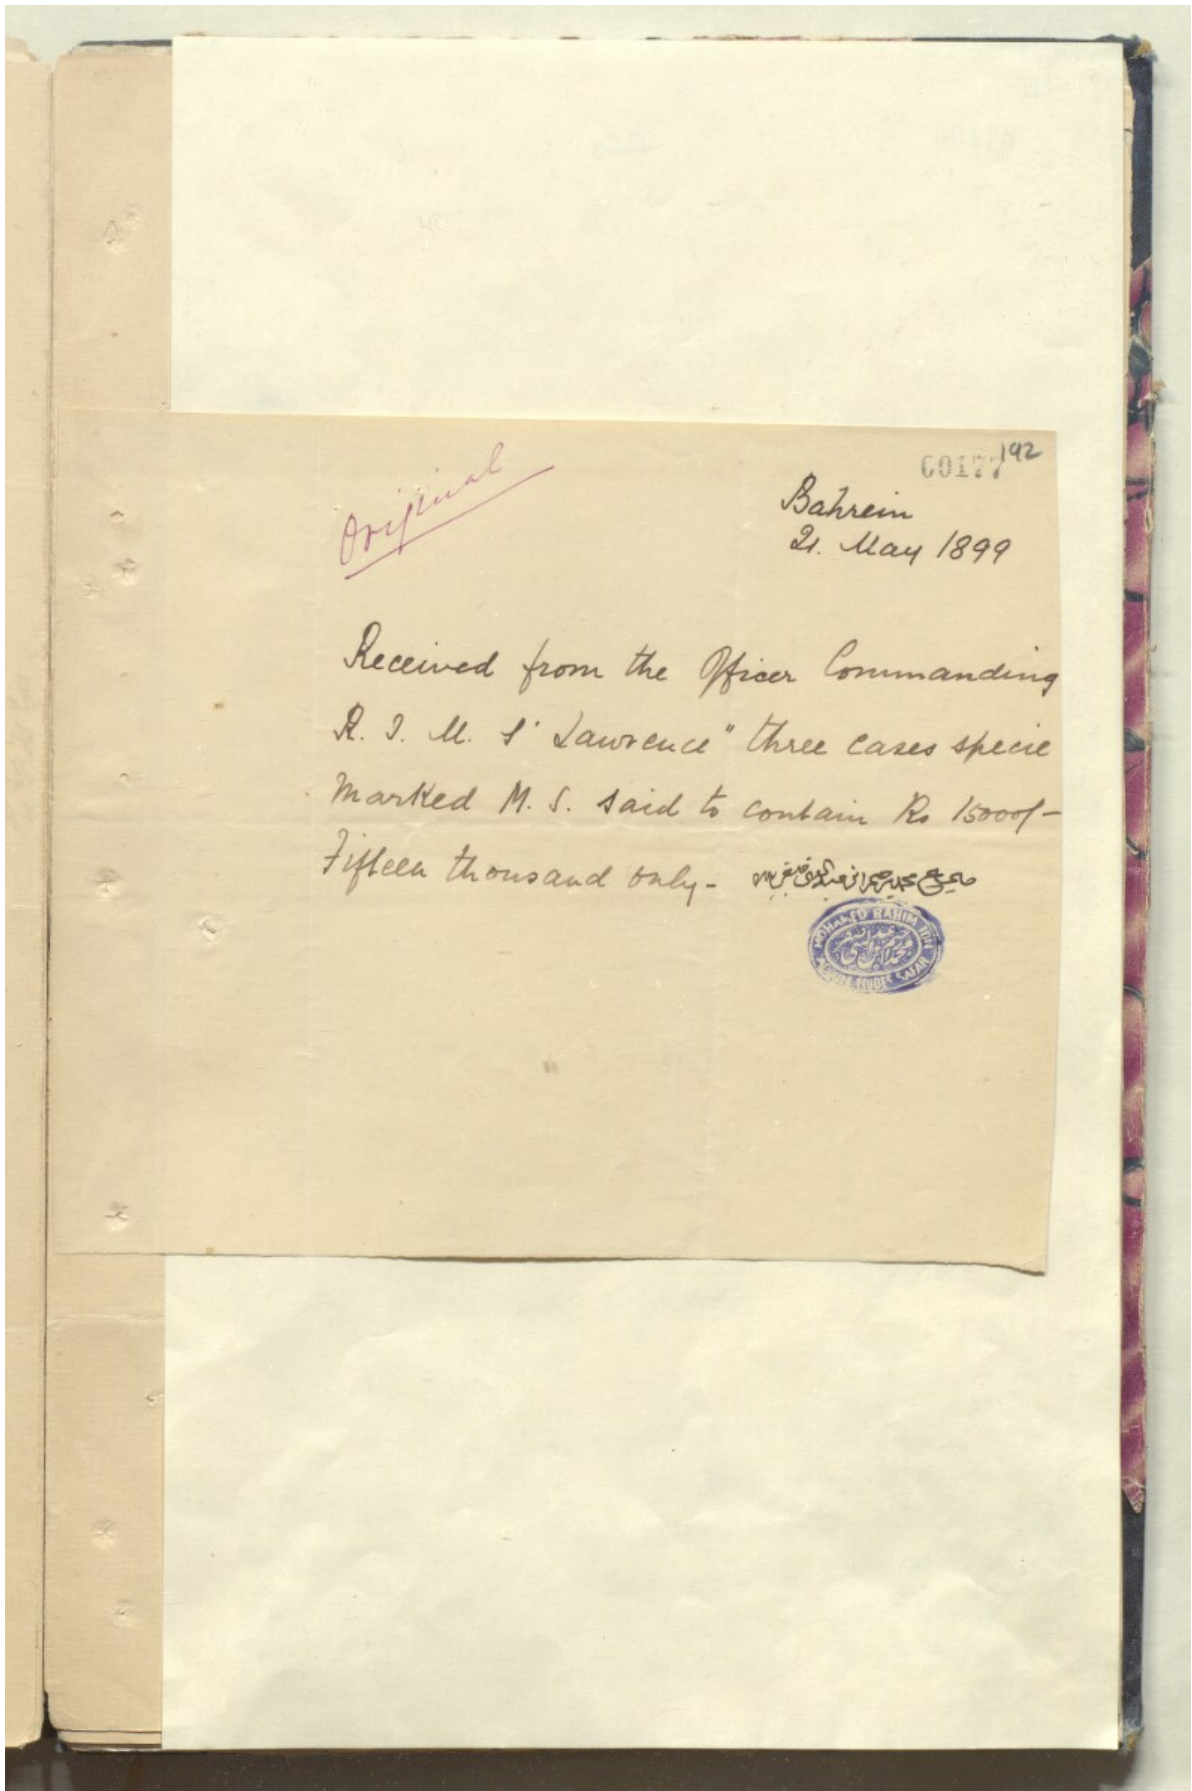 192
00177
Original
Bahrein
21. May 1899
Received from the Officer Commanding
R. I. M. S "Lawrence" three cases specie
marked M. S. said to contain Rs 15000/-
Fifteen thousand only-
MOHAMED RAHIM IBN
SAFAR